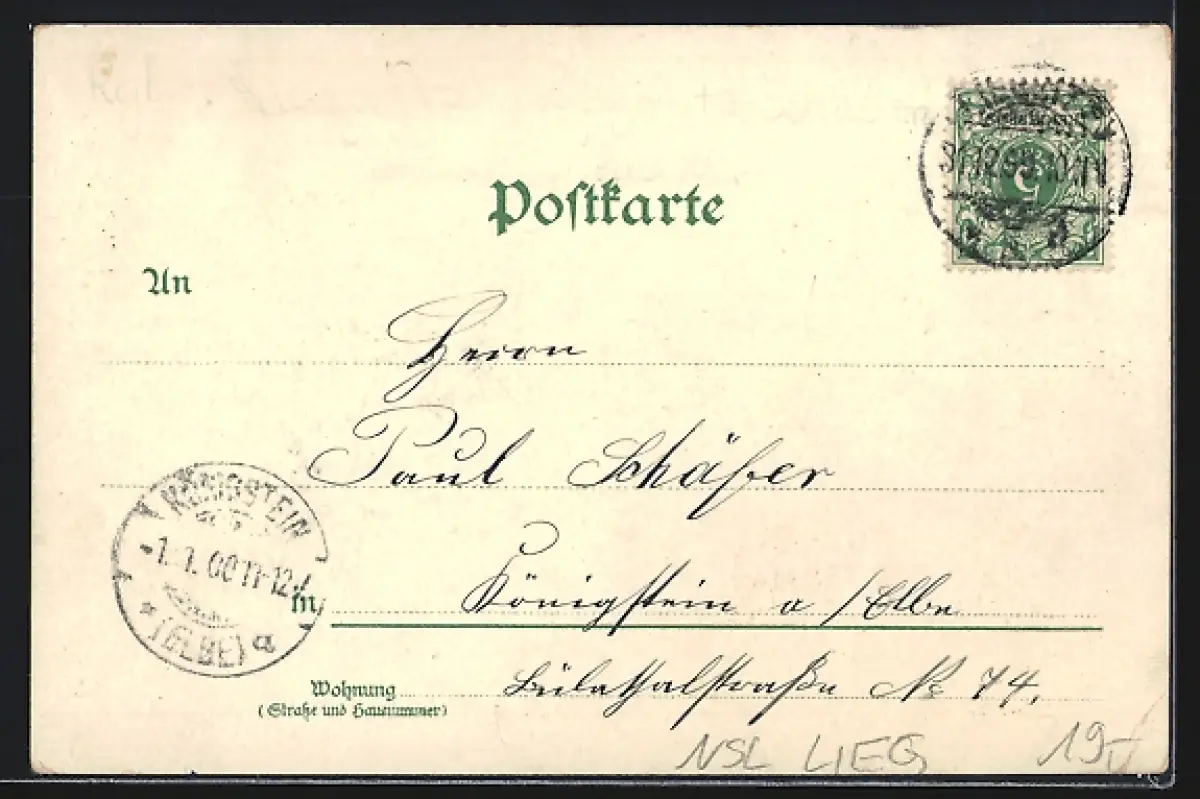 Postkarte
31.12.99. 10-11V
5
An
Herrn
Paul Schäfer
KÖNIGSTEIN
1.1.00 11-12V
(ELBE)
a
in Königstein a/Elbe
Wohnung Bielathalstraße No 74,
(Straße und Hausnummer)
NSL LIEG 19